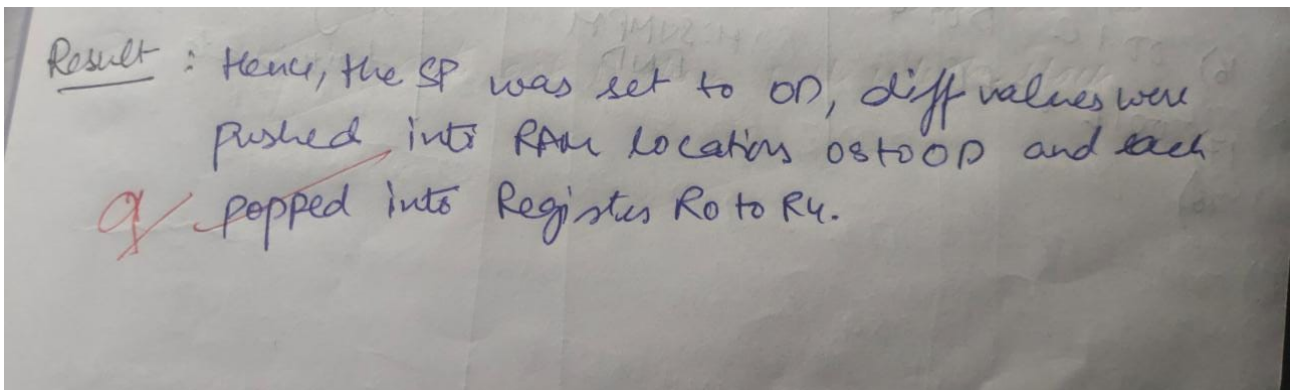 Result : Hence, the SP was set to 0D, diff values were
pushed into RAM locations 08 to 0D and each
popped into Registers R0 to R4.